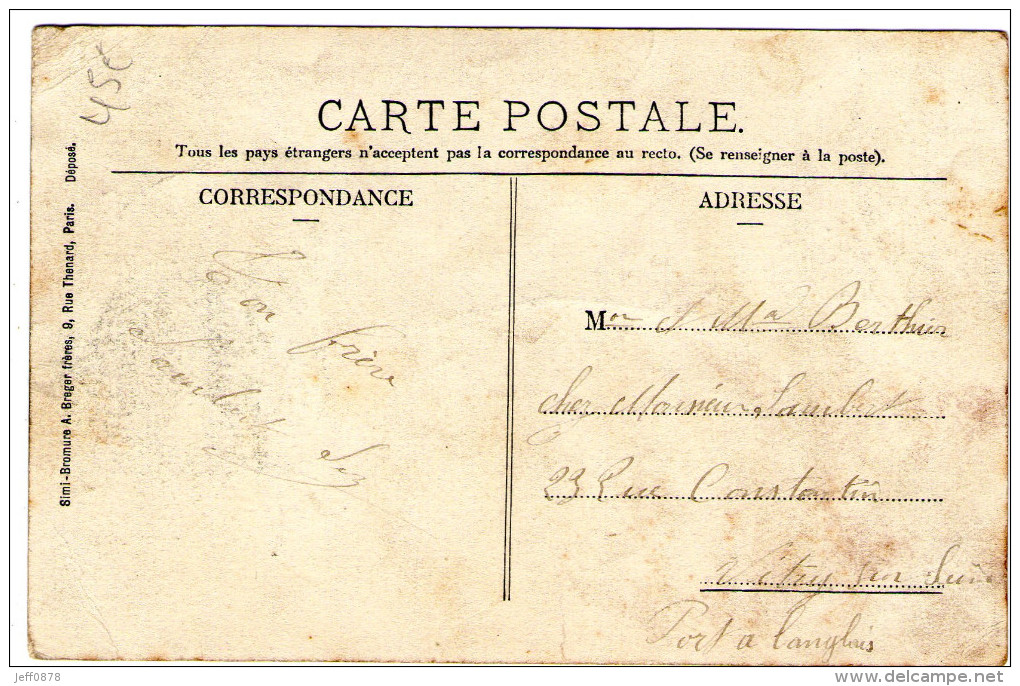 45€
CARTE POSTALE.
Tous les pays étrangers n'acceptent pas la correspondance au recto. (Se renseigner à la poste).
CORRESPONDANCE
ADRESSE
Ton frère
Lambert
Mon Ma Berthier
chez Monsieur Lambert
23 Rue Constantin
Vitry sur Seine
Port a Langlais
Simi-Bromure A. Breger frères, 9, Rue Thenard, Paris. Déposé.
jeff0878
www.delcampe.net